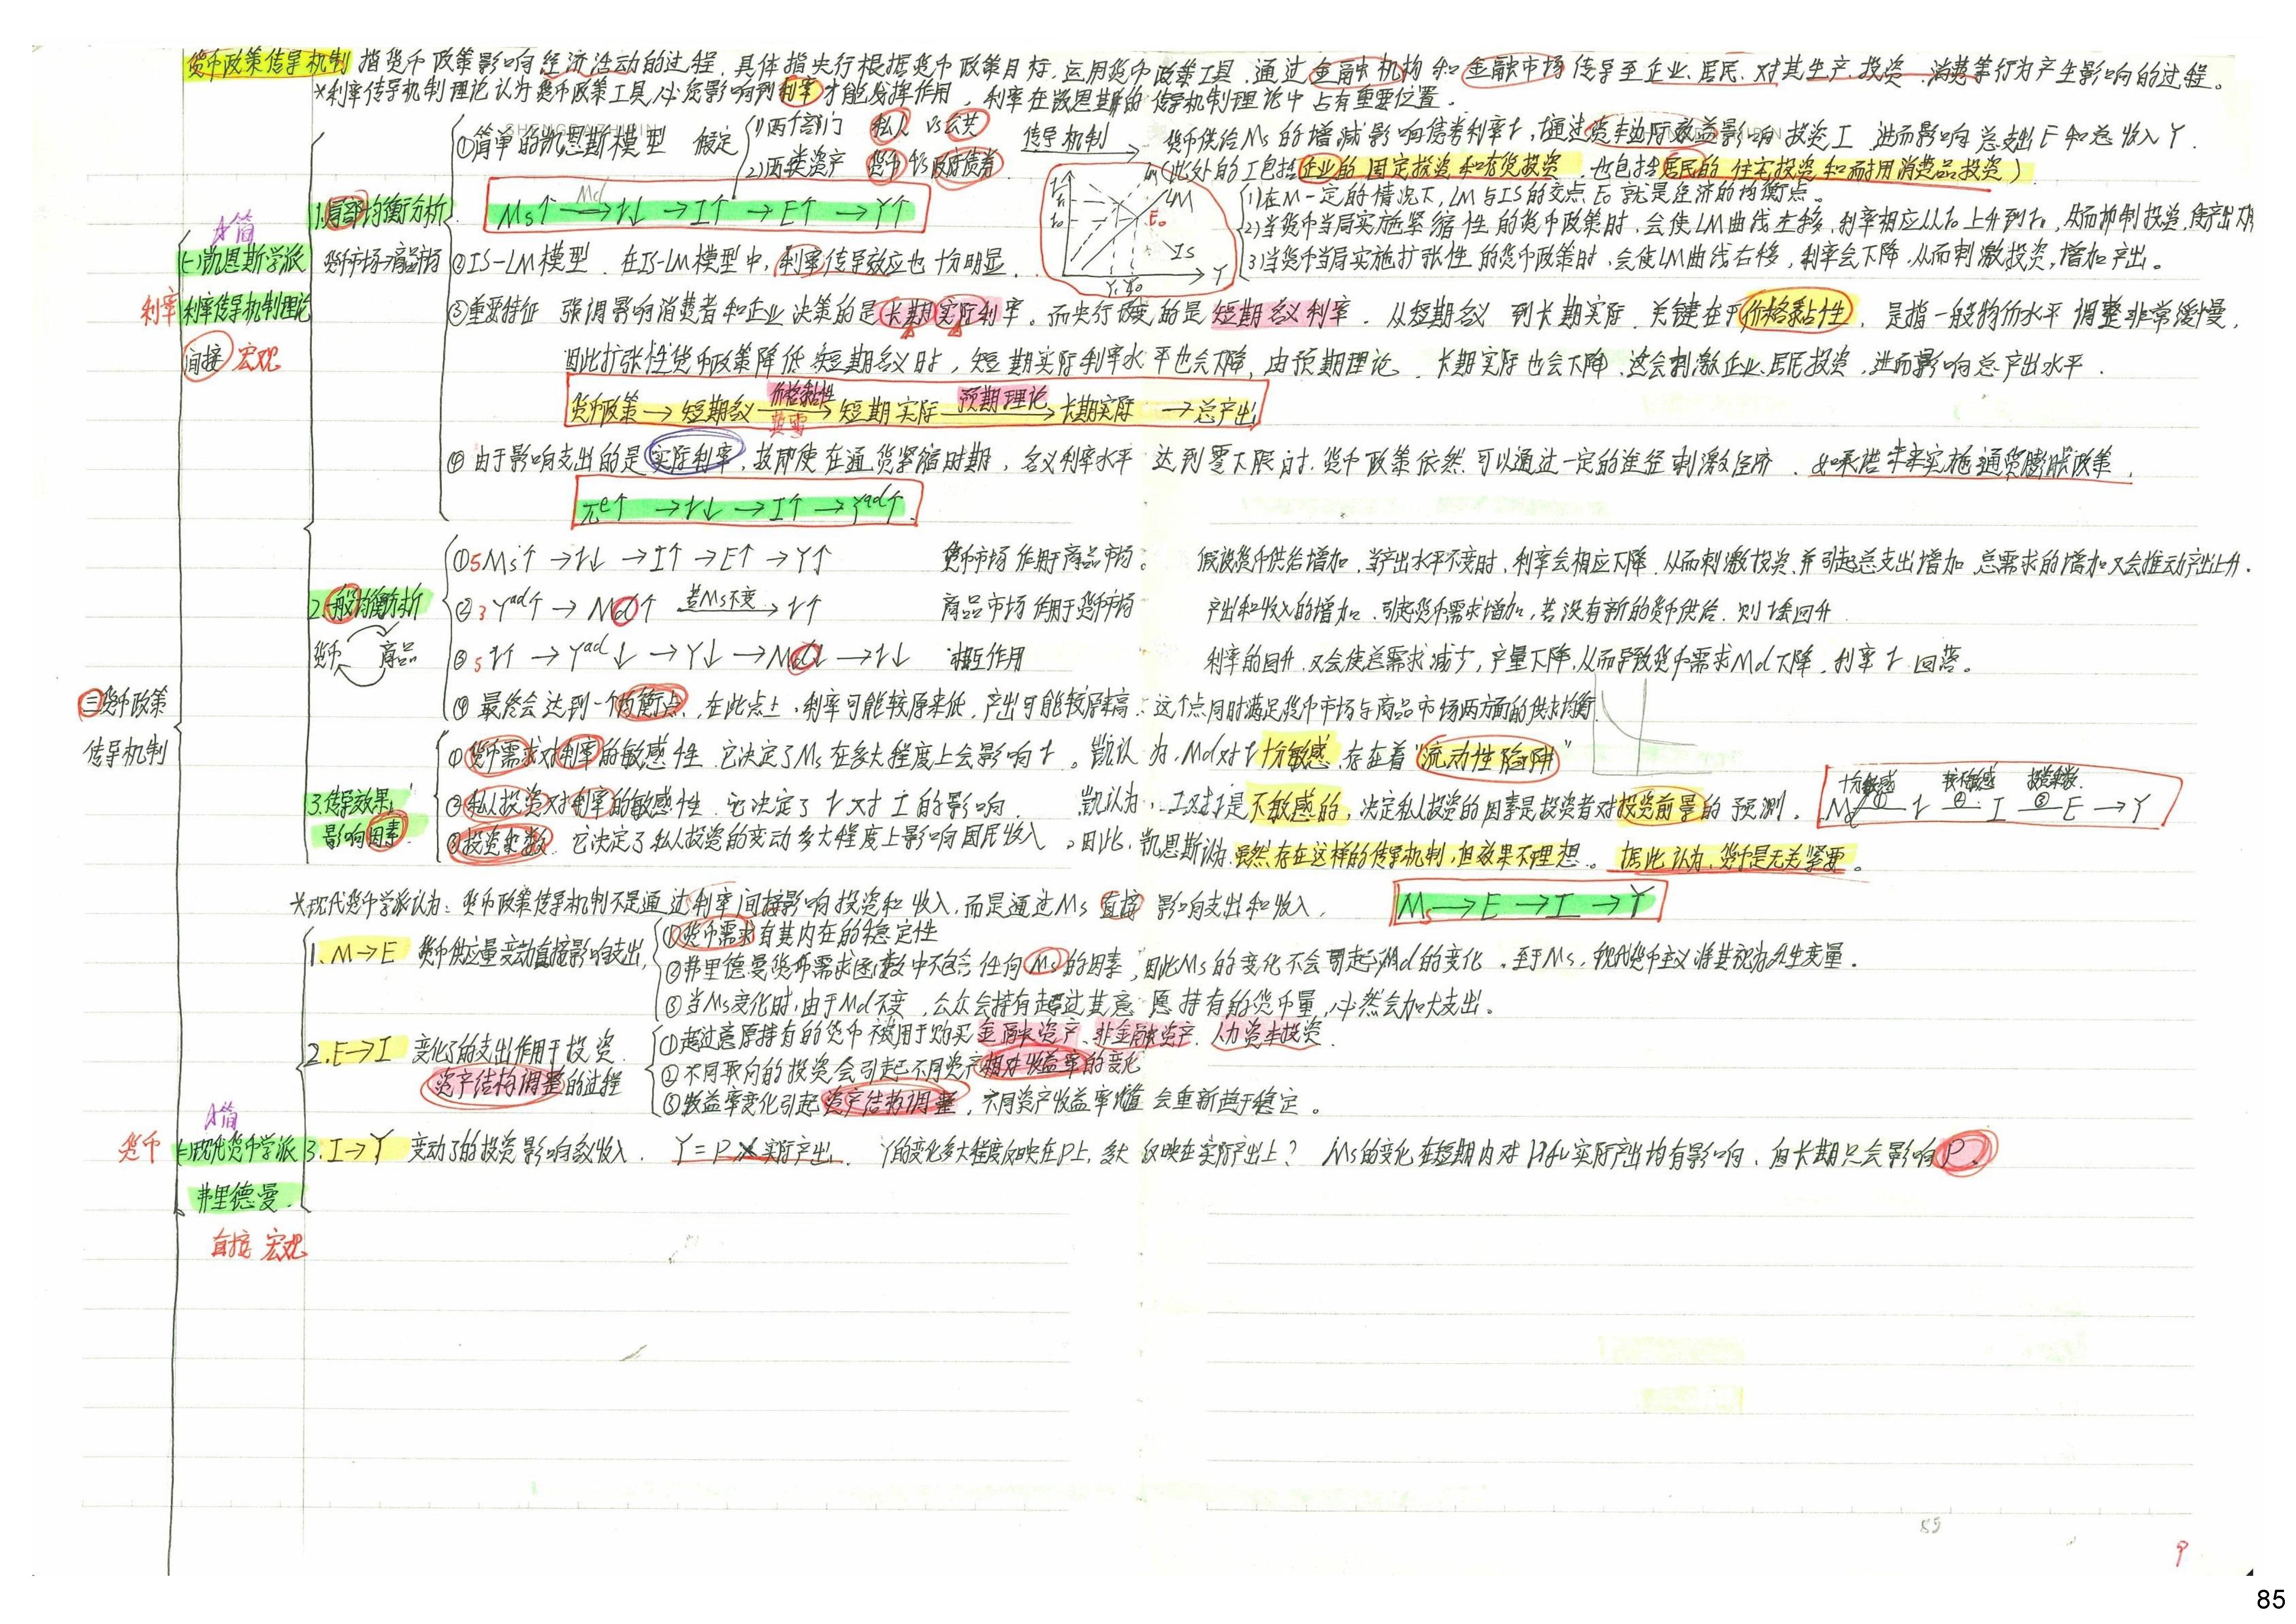 货币政策传导机制 指货币政策影响经济活动的过程，具体指央行根据货币政策目标，运用货币政策工具，通过金融机构和金融市场传导至企业、居民，对其生产、投资、消费等行为产生影响的过程。
*利率传导机制理论认为货币政策工具必须影响到利率才能发挥作用，利率在凯恩斯的传导机制理论中占有重要位置。
三 货币政策传导机制
利率
A简
(一)凯恩斯学派利率传导机制理论
间接 宏观
1.局部均衡分析
货币市场→商品市场
①简单的凯恩斯模型 假定
1)两个部门 私人 vs 公共
2)两类资产 货币 vs 政府债券
传导机制→ 货币供给Ms的增减影响债券利率r，r通过资本边际效益影响投资I 进而影响总支出E和总收入Y.
(此处的I包括企业的固定投资和存货投资，也包括居民的住宅投资和耐用消费品投资)
Ms↑ —Md→ r↓ → I↑ → E↑ → Y↑
②IS-LM模型. 在IS-LM模型中，利率传导效应也十分明显.
LM
E₀
IS
Y₁ Y₀ Y
1)在M一定的情况下，LM与IS的交点E₀就是经济的均衡点。
(2)当货币当局实施紧缩性的货币政策时，会使LM曲线左移，利率相应从r₀上升到r₁，从而抑制投资，使产出
(3)当货币当局实施扩张性的货币政策时，会使LM曲线右移，利率会下降，从而刺激投资，增加产出。
③重要特征 强调影响消费者和企业决策的是长期实际利率。而央行改变的是短期名义利率. 从短期名义 到长期实际. 关键在于价格黏性，是指一般物价水平调整非常缓慢，
因此扩张性货币政策降低短期名义时，短期实际利率水平也会下降，由预期理论. 长期实际也会下降. 这会刺激企业.居民投资，进而影响总产出水平.
货币政策 → 短期名义 —价格黏性→ 短期实际 —预期理论→ 长期实际 → 总产出
④由于影响支出的是实际利率，故即使在通货紧缩时期，名义利率水平达到零下限时，货币政策依然可以通过一定的途径刺激经济. 如承诺未来实施通货膨胀政策.
πe↑ → r↓ → I↑ → Yad↑.
2.一般均衡分析
货币 商品
① 5 Ms↑ → r↓ → I↑ → E↑ → Y↑ 货币市场作用于商品市场: 假设货币供给增加，当产出水平不变时，利率会相应下降，从而刺激投资，并引起总支出增加 总需求的增加又会推动产出上升.
② 3 Yad↑ → Md↑ —若Ms不变→ r↑ 商品市场作用于货币市场 产出和收入的增加，引起货币需求增加，若没有新的货币供给，则r会回升
③ 5 r↑ → Yad↓ → Y↓ → Md↓ → r↓ 相互作用 利率的回升，又会使总需求减少，产量下降，从而导致货币需求Md下降，利率r回落。
④最终会达到一个均衡点，在此点上，利率可能较原来低，产出可能较原来高: 这个点同时满足货币市场与商品市场两方面的供求均衡
3.传导效果影响因素
①货币需求对利率的敏感性. 它决定了Ms在多大程度上会影响r。 凯认为，Md对r十分敏感，存在着“流动性陷阱”
②私人投资对利率的敏感性. 它决定了r对I的影响 凯认为，I对r是不敏感的，决定私人投资的因素是投资者对投资前景的预测。
③投资乘数. 它决定了私人投资的变动多大程度上影响国民收入. 因此，凯恩斯认为.虽然存在这样的传导机制，但效果不理想。 据此认为，货币是无关紧要。
Md —十分敏感①— r —较不敏感②— I —投资乘数③— E → Y
*现代货币学派认为: 货币政策传导机制不是通过利率间接影响投资和收入，而是通过Ms直接影响支出和收入,
Ms → E → I → Y
货币
A简
(二)现代货币学派
弗里德曼.
直接 宏观
1. M→E 货币供应量变动直接影响支出,
①货币需求有其内在的稳定性
②弗里德曼货币需求函数中不包含任何Ms的因素，因此Ms的变化不会引起Md的变化. 至于Ms，现代货币主义将其视为外生变量.
③当Ms变化时，由于Md不变，公众会持有超过其意愿持有的货币量，必然会加大支出。
2. E→I 变化了的支出作用于投资.
资产结构调整的过程
①超过意愿持有的货币被用于购买金融资产、非金融资产，人力资本投资.
②不同取向的投资会引起不同资产相对收益率的变化
③收益率变化引起资产结构调整，不同资产收益率比值会重新趋于稳定。
3. I→Y 变动了的投资影响到收入. Y=P×实际产出. Y的变化多大程度反映在P上，多大反映在实际产出上? Ms的变化在短期内对P和实际产出均有影响，但长期只会影响P.
85
9
85